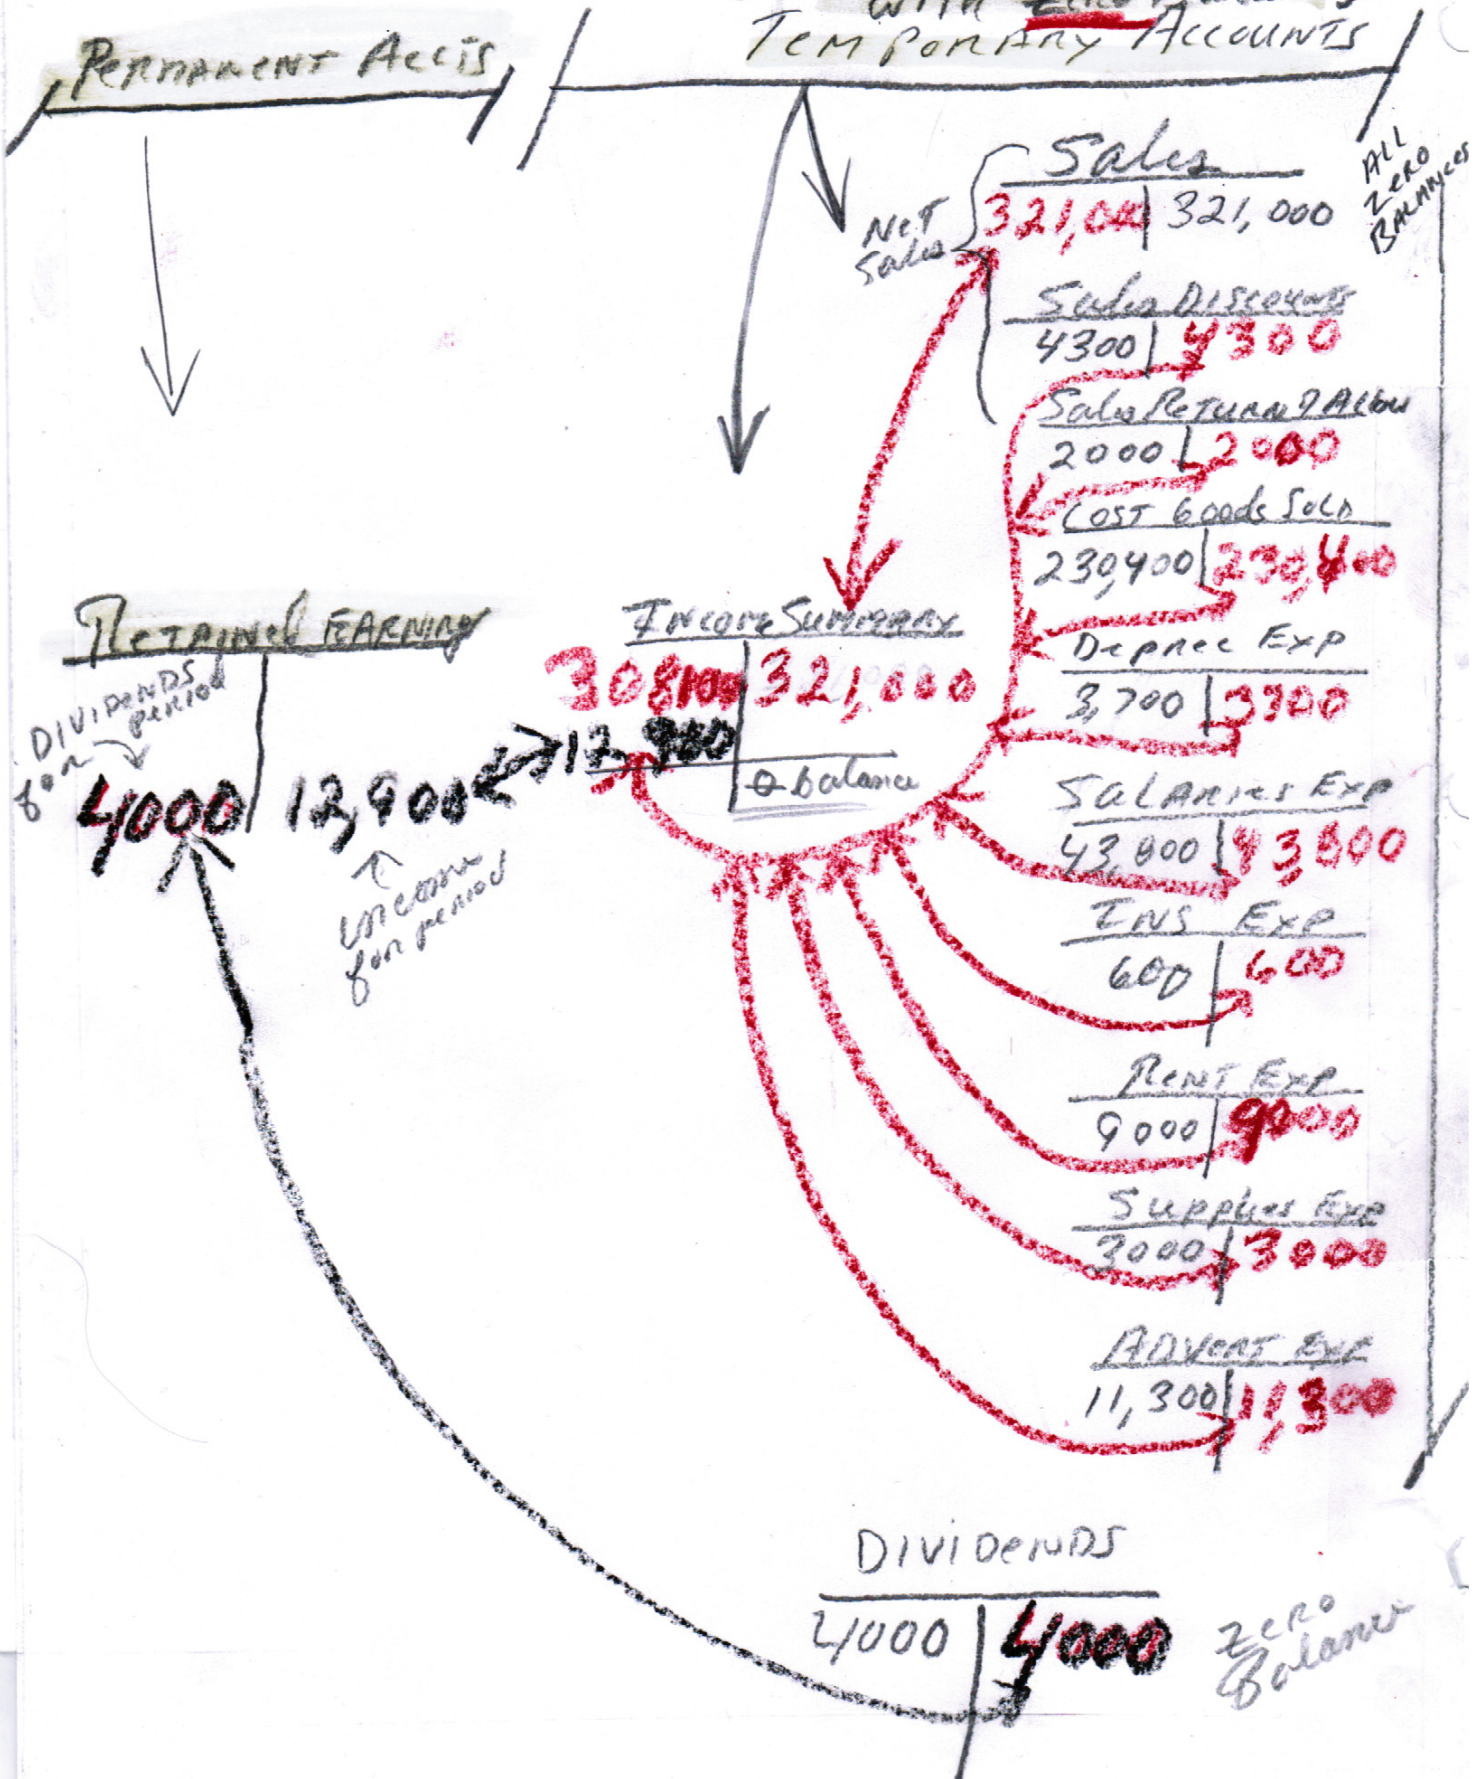 WITH ZERO
TEMPORARY ACCOUNTS
PERMANENT ACCTS
ALL
ZERO
BALANCES
Sales
321,000 | 321,000
NET
Sales
Sales DISCOUNTS
4300 | 4300
Sales RETURN & Allow
2000 | 2000
COST Goods Sold
230,400 | 230,400
Deprec Exp
3,700 | 3700
SALARIES EXP
43,800 | 43,800
INS EXP
600 | 600
RENT EXP
9000 | 9000
Supplies Exp
3000 | 3000
ADVERT EXP
11,300 | 11,300
Income Summary
308100 | 321,000
12,900
0 balance
RETAINED EARNING
DIVIDENDS
for period
4000 | 12,900
income
for period
DIVIDENDS
4000 | 4000
Zero
Balance